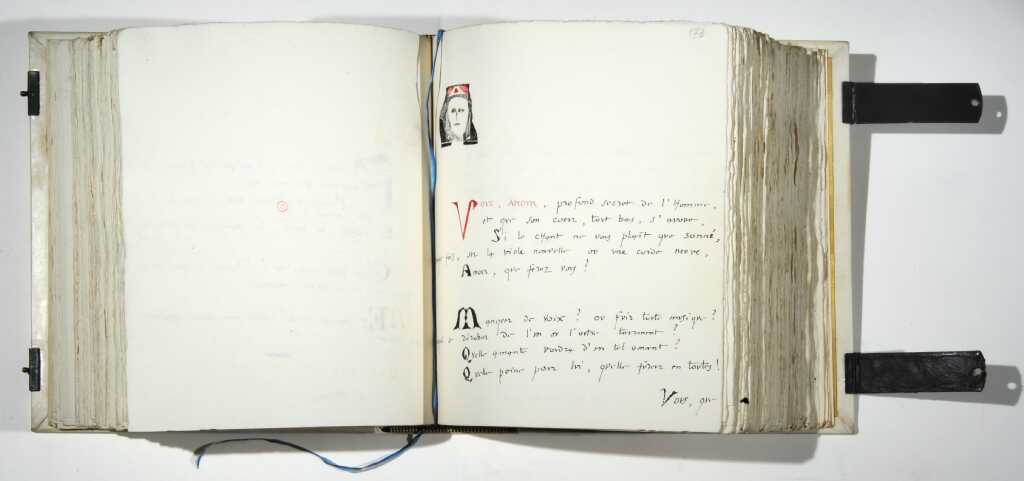 178
Vous, Amour, profond secret de l'Homme,
et que son coeur, tout bas, s'avoue,
Si le chant ne vous plaît que
sur la viole nouvelle ou une corde neuve,
Amour, que ferez vous ?
de voix ? ou fuir toute musique ?
de l'un ou l'autre tourment ?
Quelle amante voudra d'un tel amant ?
Quelle peine pour lui, quelle fureur en toutes !
Vous, que